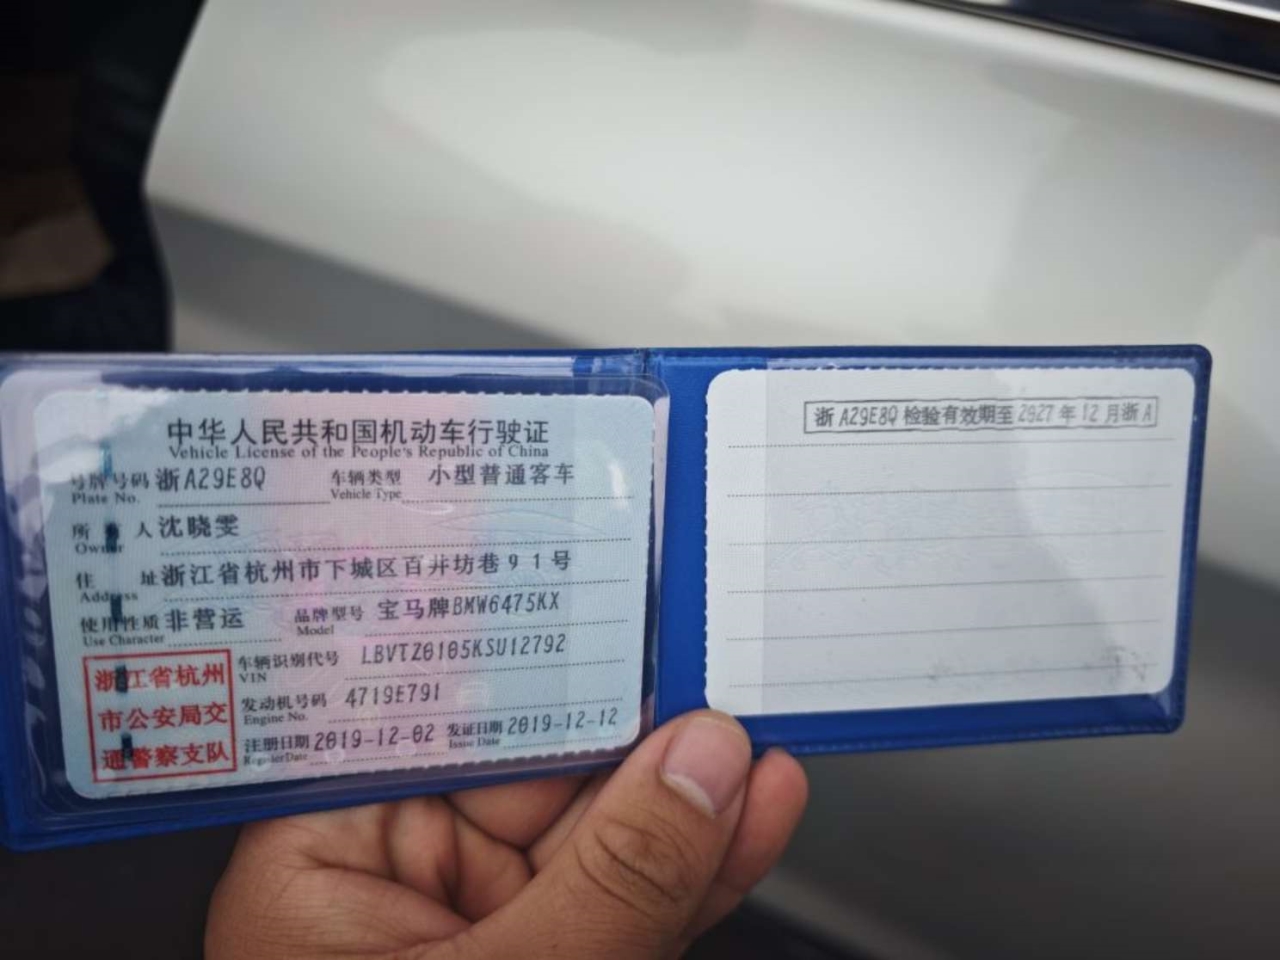 中华人民共和国机动车行驶证
Vehicle License of the People's Republic of China
号牌号码 浙A29E8Q 车辆类型 小型普通客车
Plate No. Vehicle Type
所有人 沈晓雯
Owner
住址 浙江省杭州市下城区百井坊巷91号
Address
使用性质 非营运 品牌型号 宝马牌BMW6475KX
Use Character Model
浙江省杭州
市公安局交
通警察支队
车辆识别代号 LBVTZ0105KSU12792
VIN
发动机号码 4719E791
Engine No.
注册日期 2019-12-02 发证日期 2019-12-12
Register Date Issue Date
浙A29E8Q检验有效期至2027年12月浙A